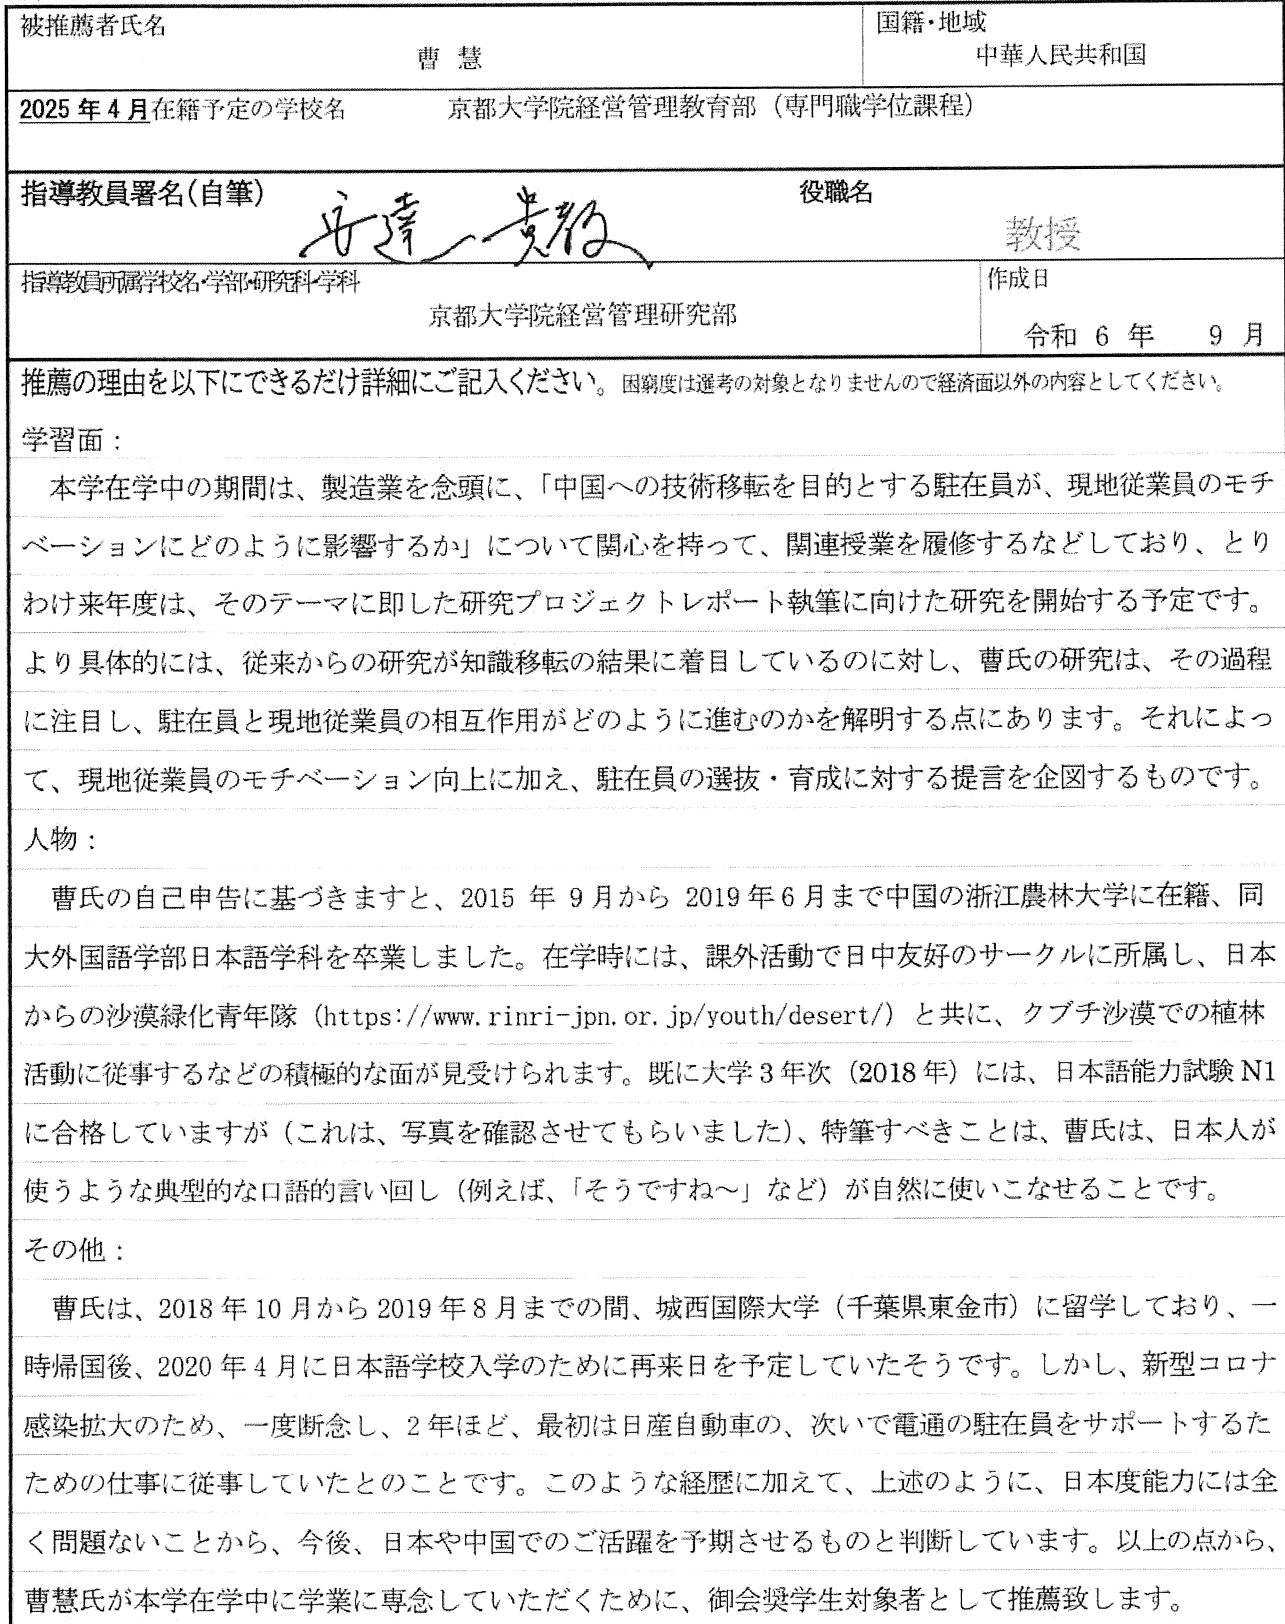 被推薦者氏名
曹 慧
国籍・地域
中華人民共和国
2025年4月在籍予定の学校名 京都大学院経営管理教育部（専門職学位課程）
指導教員署名(自筆) 安達 貴教
役職名
教授
指導教員所属学校名・学部・研究科・学科
京都大学院経営管理研究部
作成日
令和 6 年 9 月
推薦の理由を以下にできるだけ詳細にご記入ください。困窮度は選考の対象となりませんので経済面以外の内容としてください。
学習面：
本学在学中の期間は、製造業を念頭に、「中国への技術移転を目的とする駐在員が、現地従業員のモチ
ベーションにどのように影響するか」について関心を持って、関連授業を履修するなどしており、とり
わけ来年度は、そのテーマに即した研究プロジェクトレポート執筆に向けた研究を開始する予定です。
より具体的には、従来からの研究が知識移転の結果に着目しているのに対し、曹氏の研究は、その過程
に注目し、駐在員と現地従業員の相互作用がどのように進むのかを解明する点にあります。それによっ
て、現地従業員のモチベーション向上に加え、駐在員の選抜・育成に対する提言を企図するものです。
人物：
曹氏の自己申告に基づきますと、2015 年 9月から 2019年6月まで中国の浙江農林大学に在籍、同
大外国語学部日本語学科を卒業しました。在学時には、課外活動で日中友好のサークルに所属し、日本
からの沙漠緑化青年隊（https://www.rinri-jpn.or.jp/youth/desert/）と共に、クブチ沙漠での植林
活動に従事するなどの積極的な面が見受けられます。既に大学3年次（2018年）には、日本語能力試験N1
に合格していますが（これは、写真を確認させてもらいました）、特筆すべきことは、曹氏は、日本人が
使うような典型的な口語的言い回し（例えば、「そうですね～」など）が自然に使いこなせることです。
その他：
曹氏は、2018年10月から2019年8月までの間、城西国際大学（千葉県東金市）に留学しており、一
時帰国後、2020年4月に日本語学校入学のために再来日を予定していたそうです。しかし、新型コロナ
感染拡大のため、一度断念し、2年ほど、最初は日産自動車の、次いで電通の駐在員をサポートするた
ための仕事に従事していたとのことです。このような経歴に加えて、上述のように、日本度能力には全
く問題ないことから、今後、日本や中国でのご活躍を予期させるものと判断しています。以上の点から、
曹慧氏が本学在学中に学業に専念していただくために、御会奨学生対象者として推薦致します。